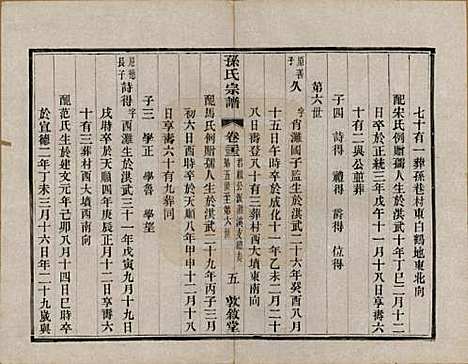 七十有一葬孫巷村東白鶴地東北向
配宋氏例贈孺人生於洪武十年丁巳二月十二
日卒於正統三年戊午八月十二日享壽六
十有二與公並葬
子四 詩得 禮得 爵得 位得
第六世
原善子久字肯灘國子監生於洪武二十六年癸酉八月
十五日午時卒於成化十一年乙未二月二十
八日壽八十有三葬村西大墳東南向
配馬氏例贈孺人生於洪武二十九年丙子三月
時卒於天順八年甲申十二月十八
日享壽六十有九葬同
子三 學正 學魯 學望
原德長子詩得字西灘生於洪武三十一年戊寅九月十七日
戌時卒於天順四年庚辰正月十二日享壽六
十有三葬村西大墳西南向
配范氏生於建文元年己卯八月十四日巳時卒
於宣德二年丁未三月十六日年二十九歲與
孫氏宗譜
卷三
第五世至第六世
五
敦敘堂